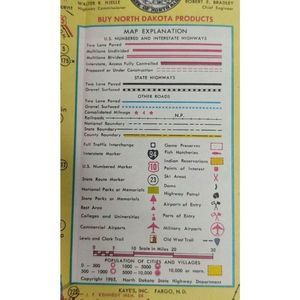 WALTER R. HJELLE
ROBERT E. BRADLEY
Highway Commissioner
Chief Engineer
BUY NORTH DAKOTA PRODUCTS
MAP EXPLANATION
U.S. NUMBERED AND INTERSTATE HIGHWAYS
Two Lane Paved
Multilane Undivided
Multilane Divided
Interstate, Access Fully Controlled
Proposed or Under Construction
STATE HIGHWAYS
Two Lane Paved
Gravel Surfaced
OTHER ROADS
Two Lane Paved
Gravel Surfaced
Consolidated Mileage
Railroads N.P.
National Boundary
State Boundary
County Boundary
Full Traffic Interchange
Game Preserves
Fish Hatcheries
Interstate Marker 94
Indian Reservations
U.S. Numbered Marker 10
Points of Interest
Ski Areas
State Route Marker 23
Dams
National Parks or Memorials
Highway Patrol
State Parks or Memorials
Airports of Entry
Rest Area
Ports of Entry
Colleges and Universities
Military Airports
Commercial Airports
Lewis and Clark Trail
Old West Trail
Scale in Miles
POPULATION OF CITIES AND VILLAGES
0 - 300
1000 - 3000
10,000 or more
300 - 500
3000 - 5000
500 - 1000
5000 - 10,000
Copyright 1963, North Dakota State Highway Department
KAYE'S, INC. FARGO, N.D.
J. F. KENNEDY MEM. BR.